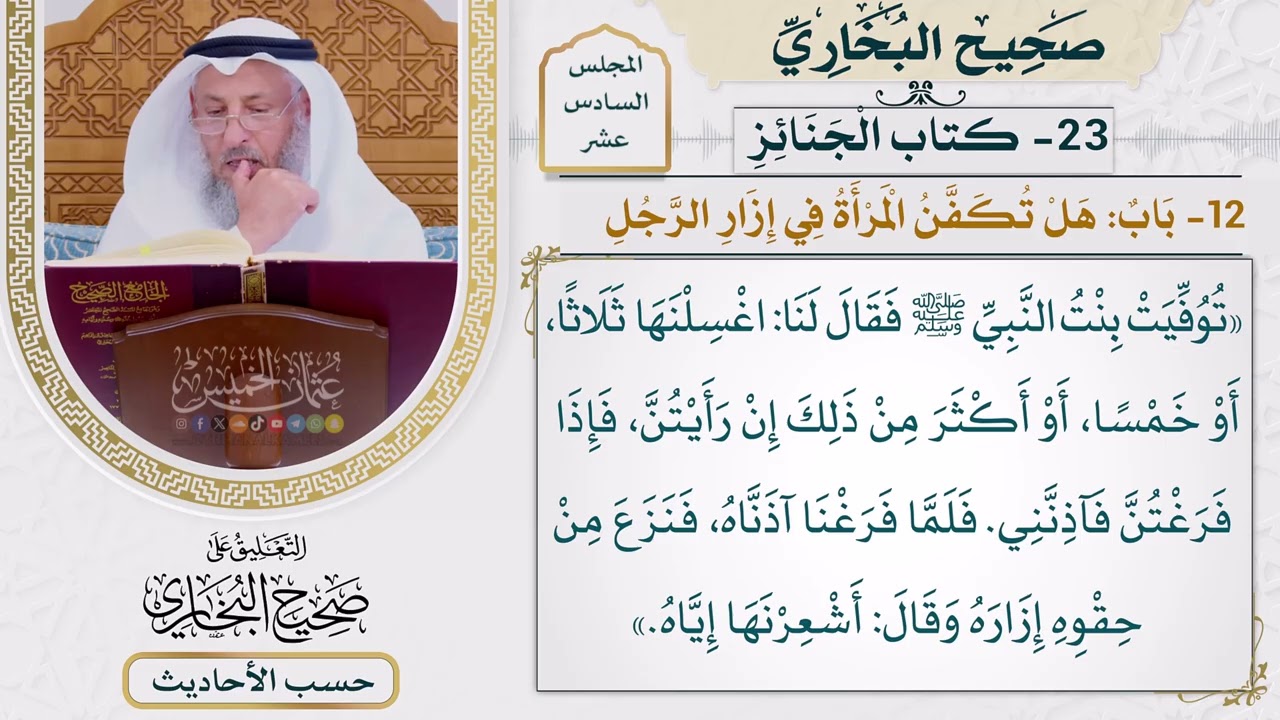 صَحِيح البُخَارِيِّ
المجلس
السادس
عشر
23- كتاب الْجَنَائِزِ
12- بَابٌ: هَلْ تُكَفَّنُ الْمَرْأَةُ فِي إِزَارِ الرَّجُلِ
«تُوُفِّيَتْ بِنْتُ النَّبِيِّ ﷺ فَقَالَ لَنَا: اغْسِلْنَهَا ثَلَاثًا،
أَوْ خَمْسًا، أَوْ أَكْثَرَ مِنْ ذَلِكَ إِنْ رَأَيْتُنَّ، فَإِذَا
فَرَغْتُنَّ فَآذِنَّنِي. فَلَمَّا فَرَغْنَا آذَنَّاهُ، فَنَزَعَ مِنْ
حِقْوِهِ إِزَارَهُ وَقَالَ: أَشْعِرْنَهَا إِيَّاهُ.»
الجامع الصحيح
عثمان الخميس
التَّعْلِيقُ عَلَى
صَحِيح البُخَارِي
حسب الأحاديث